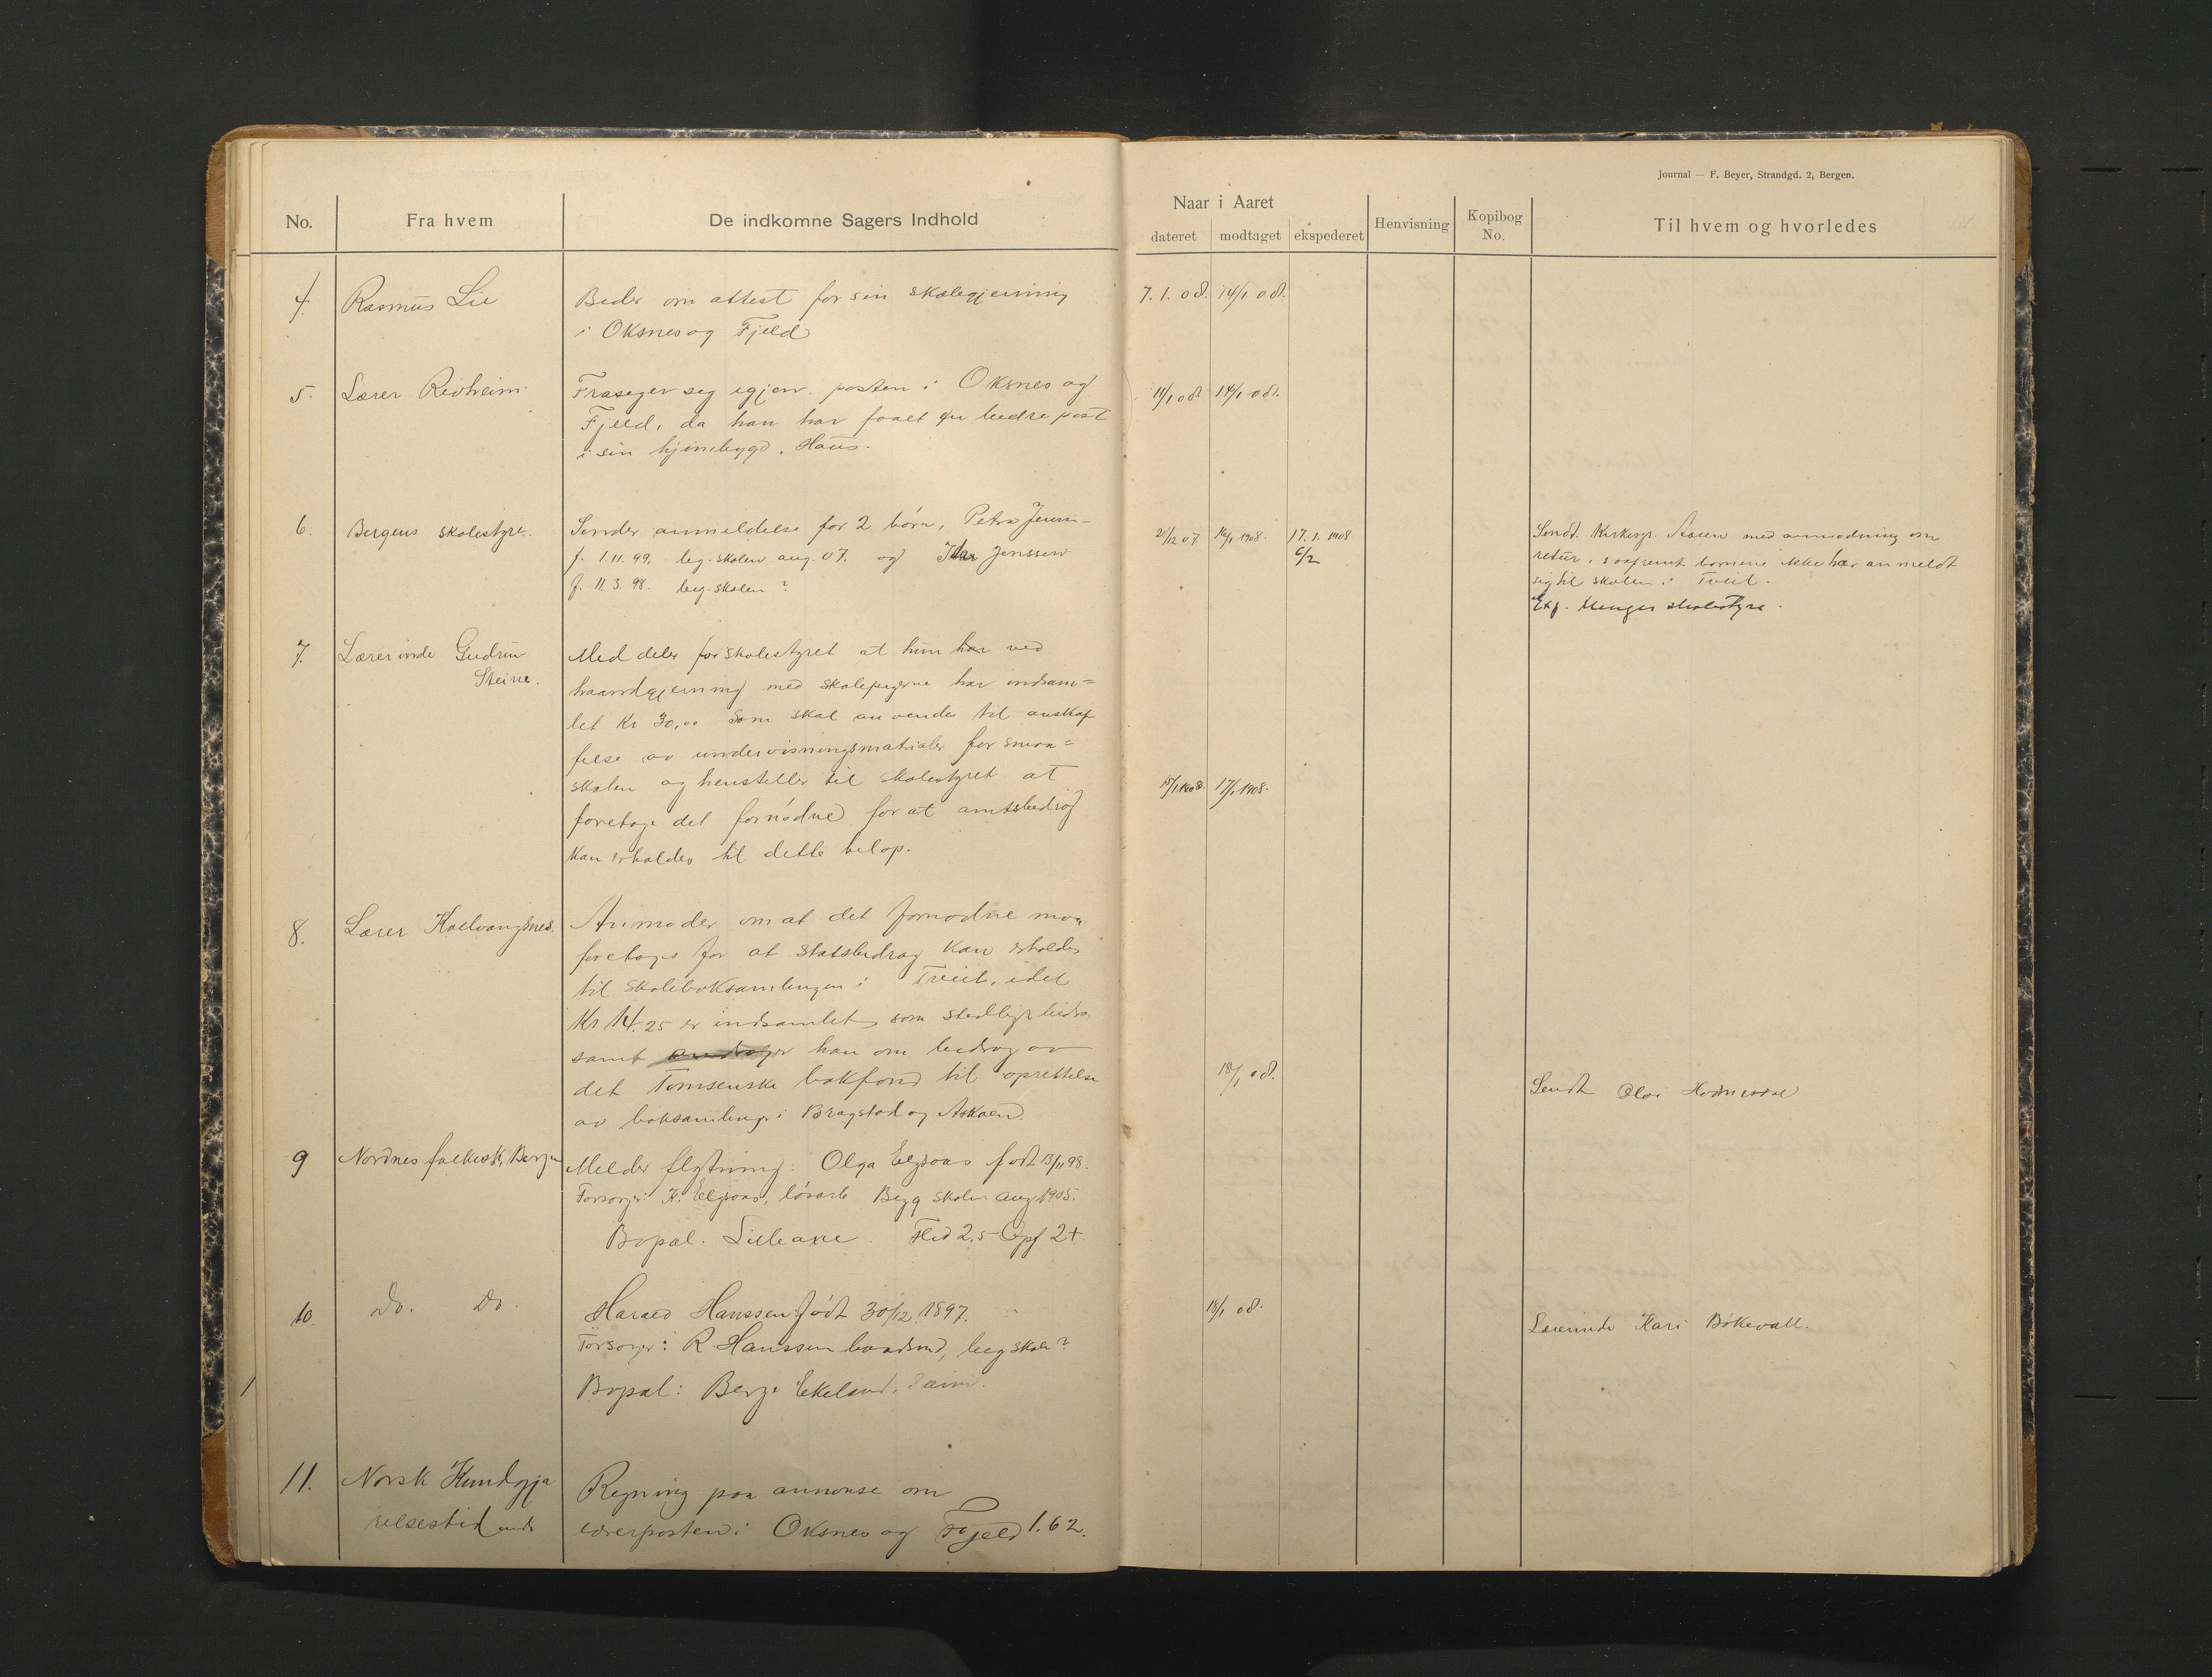 Journal — F. Beyer, Strandgd. 2, Bergen.
No.
Fra hvem
De indkomne Sagers Indhold
Naar i Aaret
dateret
modtaget
ekspederet
Henvisning
Kopibog No.
Til hvem og hvorledes
4. Rasmus Lie Beder om attest for sin skolegjerning 7. 1. 08. 14/1 08.
i Oksnes og Fjeld
5. Lærer Reisheim Fraseger seg igjen posten i Oksnes og 11/1 08 14/1 08.
Fjeld, da han har faaet en bedre post
i sin hjembygd, Haus.
6. Bergens skolestyre. Sender anmeldelse for 2 børn, Petra Jenssen 21/12 07 16/1 1908. 17. 1. 1908 Sendt. Kirkesgr. Aasen med anmodning om
f. 1.11.99, beg. skolen aug. 07. og Jenssen 6/2 retur, saafremt børnene ikke har anmeldt
f. 11. 3. 98. beg. skolen ? sig til skolen i Tveit.
skolestyre.
7. Lærerinde Gudrun Meddeler forskolestyret at hun har ved
Steine. haandgjerning med skolepigerne har indsam=
let Kr 30,00 som skal anvendes til anskaf
felse av undervisningsmatrialer for smaa=
skolen og henstiller til skolestyret at 15/1 1908. 17/1 1908.
foretage det fornødne for at amtsbedrag
kan erholdes til dette beløp.
8. Lærer Anmoder om at det fornødne maa
foretages for at statsbedrag kan erholdes
til skoleboksamlingen i Tveit, idet
Kr 14.25 er indsamlet som stedlig bedra
samt andrager han om bedrag av
det Tomsenske bokfond til oprettelse 18/1 08. Sendt Olai
av boksamlinger i Bragstad og Askaen.
9 Nordnes folkesk, Bergen Melder flytning: Olga født 13/11 98.
Forsørger: K. løsarb Begg skolen aug 1905.
Bopæl. Lilleaxe. Flid 2,5 - Opf 2+
10. Do. Do. Harald Hanssen født 30/12 1897. 18/1 08. Lærerinde Kari Bøkevall.
Forsørger: R. Hanssen baadsmd, beg skole?
Bopæl: Berge Ekeland,
11. Norsk Kundgjø Regning paa annonse om
relsestidende lærerposten i Oksnes og Fjeld 1.62.